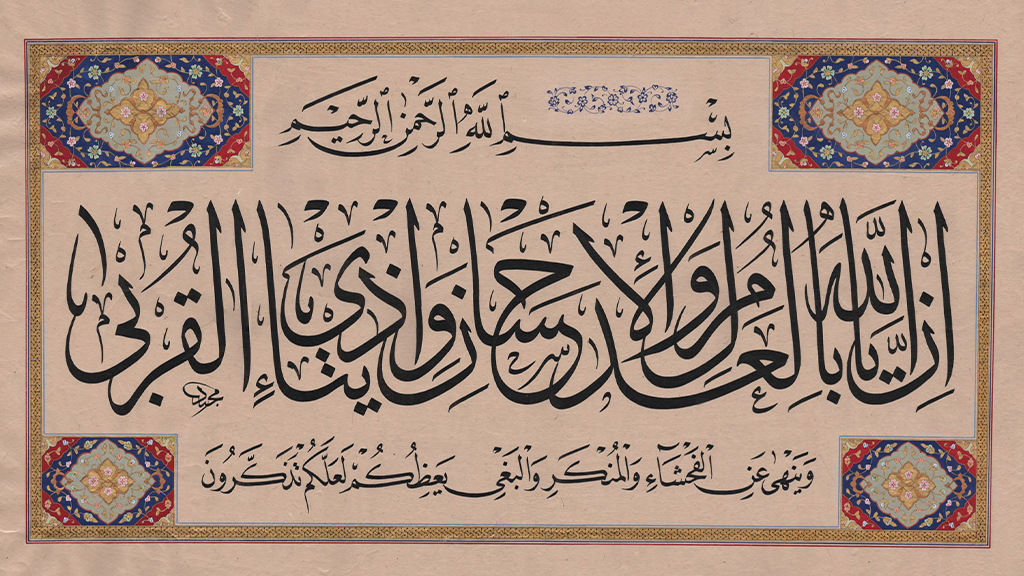 بِسْمِ اللَّهِ الرَّحْمٰنِ الرَّحِيْمِ
إِنَّ اللَّهَ يَأْمُرُ بِالْعَدْلِ وَالْإِحْسَانِ وَإِيتَاءِ ذِي الْقُرْبَىٰ
وَيَنْهَىٰ عَنِ الْفَحْشَآءِ وَالْمُنْكَرِ وَالْبَغْيِ يَعِظُكُمْ لَعَلَّكُمْ تَذَكَّرُونَ